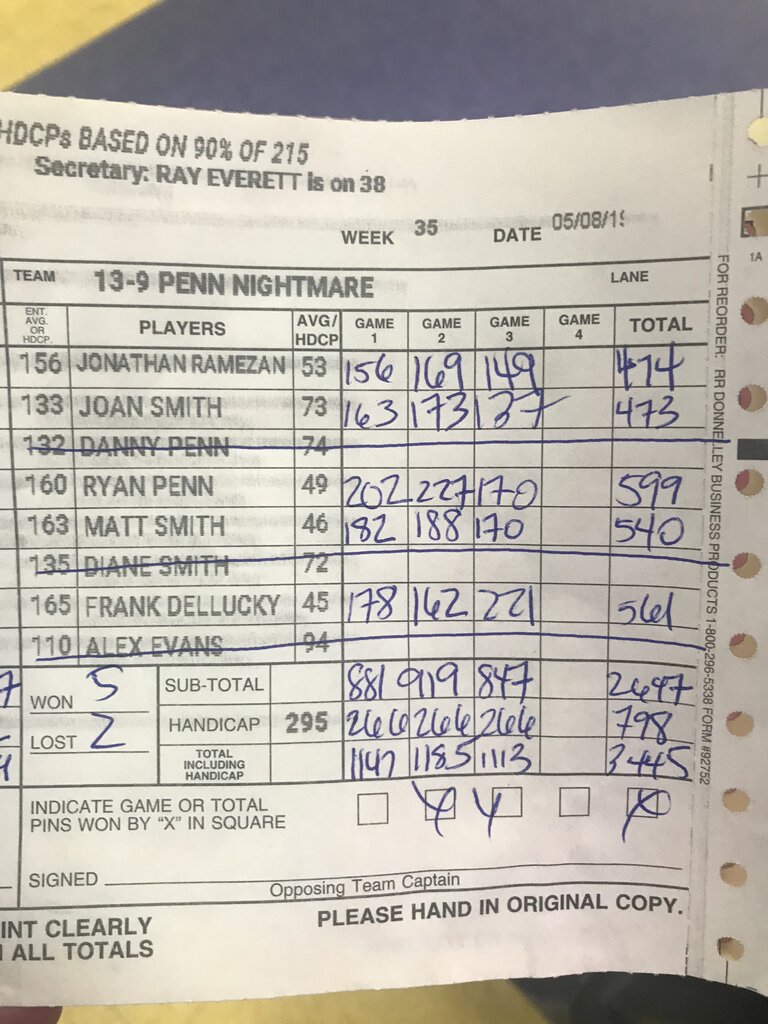 HDCPs BASED ON 90% OF 215
Secretary: RAY EVERETT is on 38
WEEK 35 DATE 05/08/19
TEAM 13-9 PENN NIGHTMARE LANE
ENT. AVG. OR HDCP. PLAYERS AVG/HDCP GAME 1 GAME 2 GAME 3 GAME 4 TOTAL
156 JONATHAN RAMEZAN 53 156 169 149 474
133 JOAN SMITH 73 163 173 137 473
132 DANNY PENN 74
160 RYAN PENN 49 202 227 170 599
163 MATT SMITH 46 182 188 170 540
135 DIANE SMITH 72
165 FRANK DELLUCKY 45 178 162 221 561
110 ALEX EVANS 94
WON 5 SUB-TOTAL 881 919 847 2647
LOST 2 HANDICAP 295 266 266 266 798
TOTAL INCLUDING HANDICAP 1147 1185 1113 3445
INDICATE GAME OR TOTAL
PINS WON BY "X" IN SQUARE X X X
SIGNED
Opposing Team Captain
INT CLEARLY
ALL TOTALS
PLEASE HAND IN ORIGINAL COPY.
FOR REORDER: RR DONNELLEY BUSINESS PRODUCTS 1-800-296-5338 FORM #92752
1A